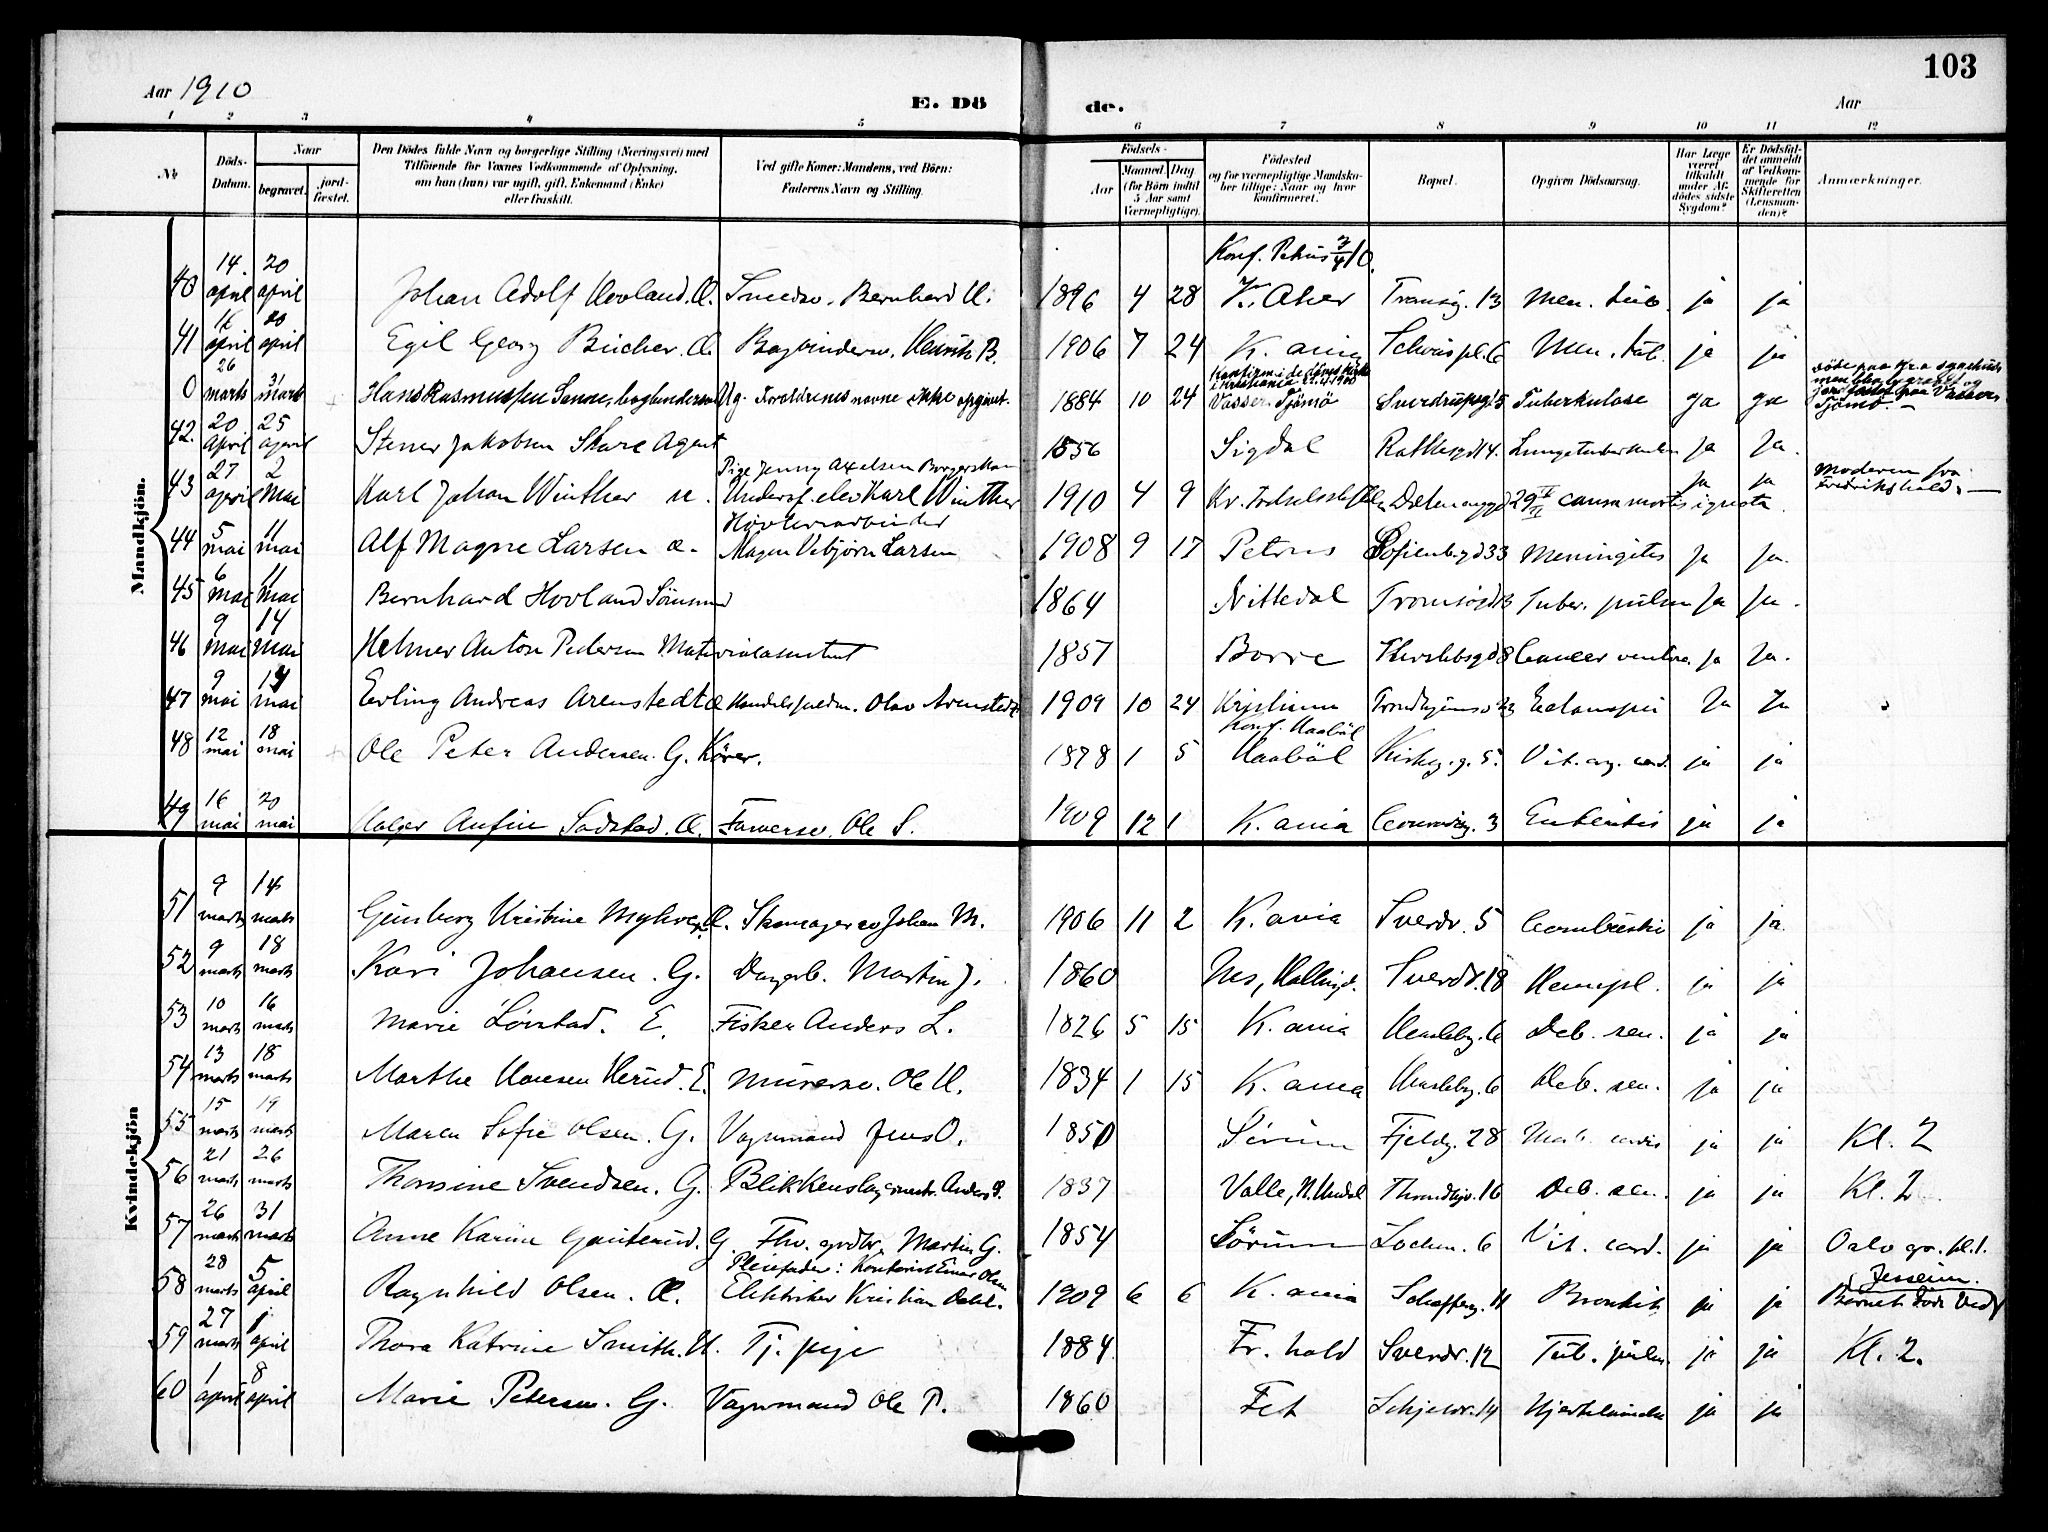 103
Aar 1910 E. Dö de. Aar
1 2 3 4 5 6 7 8 9 10 11 12
No Döds-Datum. Naar begravet. jord-fæstet. Den Dödes fulde Navn og borgerlige Stilling (Næringsvei) med Tilföiende for Voxnes Vedkommende af Oplysning, om han (hun) var ugift, gift, Enkemand (Enke) eller fraskilt. Ved gifte Koner: Mandens, ved Börn: Faderens Navn og Stilling. Födsels- Aar Maaned Dag (for Börn indtil 5 Aar samt Værnepligtige). Födested og for værnepligtige Mandskaber tillige: Naar og hvor konfirmeret. Bopæl. Opgiven Dödsaarsag. Har Læge været tilkaldt under Afdödes sidste Sygdom? Er Dödsfaldet anmeldt af Vedkommende for Skifteretten (Lensmanden)? Anmærkninger.
Mandkjön.
Konf. Petrus 3/4 10.
40 14. april 20 april Johan Adolf Hovland. U. Smedsv. Bernhard H. 1896 4 28 V. Aker Tromsög. 13 Men. tub. ja ja
41 16 april 20 april Egil Georg Bücher. U. Bogbindersv. Henrik B. 1906 7 24 K. ania Schous pl. 6 Men. tub. ja ja
0 26 marts 31 marts Hans Rasmussen bogbindersv Ug. Foreldrenes navne ikke opgivet. 1884 10 24 Vasser Tjömö Sverdrupsgd 5 Tuberkulose ja ja Tjömö.
42. 20 April 25 april Stener Jakobsen Skare Agent 1856 Sigdal Rathkesgd 14. Lungetuberkulose Ja Ja.
Pige Jenny Axelsen Borgerskan
43 27 april 2 Mai Karl Johan Winther u. Underof. elev Karl Winther 1910 4 9 Kr. causa mortis ignota Ja Ja Moderen fra Fredrikshald.
44 5 mai 11 mai Alf Magne Larsen u. Magnus Vebjörn Larsen 1908 9 17 Petrus Sofienbgd 33 Meningites Ja Ja.
45 6 mai 11 Mai Bernhard Hovland Sömsmed 1864 Nittedal Tromsögd 13 Tuber. pulm Ja Ja.
46 9 mai 14 mai Helmer Anton Pedersen Materialasistent 1857 Borre Herslebsgd 8 Cancer ventric. Ja Ja.
47 9 mai 14 mai Erling Andreas Arenstedt U Handelsfuldm. Olav Arenstedt 1909 10 24 Kristiania Trondhjemsv 23 Eclampsi Ja Ja
Konf. Haaböl
48 12 mai 18 mai Ole Peter Andersen. G. Kører. 1878 1 5 Haaböl Kirkeg. g. 5. Vit. org. cord. ja ja
49 16 mai 20 mai Holger Anfin Sadstad. U. Farversv. Ole S. 1909 12 1 K. ania 3 Enteritis ja ja
Kvindekjön
51 9 marts 14 marts Ginsberg Kristine U. Skomagersv Johan M. 1906 11 2 K. ania Sverdr. 5 Combustio ja ja.
52 9 marts 18 marts Kari Johansen. G. Dagarb. Martin J. 1860 Nes, Hallingd. Sverdr. 18 Hemipl. ja ja
53 10 marts 16 marts Marie Lörstad. E. Fisker Anders L. 1826 5 15 K. ania 6 Deb. sen. ja ja
54 13 marts 18 marts Marthe Hansen Herud. E. Murersv. Ole H. 1834 1 15 K. ania 6 Deb. sen. ja ja
55 15 marts 19 marts Maren Sofie Olsen. G. Vognmand Jens O. 1850 Sörum Fjeldg. 28 Morb. cordis ja ja Kl. 2
56 21 marts 26 marts Thomine Svendsen. G. Blikkenslagermestr. Anders S. 1837 Valle, N. Undal Throndhjv. 16 Deb. sen. ja ja Kl. 2
57 26 marts 31 marts Anne Karine Gauterud. G. Fhv. grdbr. Martin G. 1854 Sörum Lochm. 6 Vit. cord. ja ja Oslo gr. kl. 1.
Pleiefader: Kontorist Einar Olsen Jessheim.
58 28 marts 5 april Ragnhild Olsen. U. Elektriker Kristian Dahl. 1909 6 6 K. ania Schafferg. 14 Bronkit. ja ja Barnet döde ved
59 27 marts 1 april Thora Katrine Smith. U. Tj. pige 1884. Fr. hald Sverdr. 12 Tub. pulm. ja ja Kl. 2.
60 1 april 8 april Marie Petersen. G. Vognmand Ole P. 1860 Fet Schjelsr. 14 Hjertelamelse ja ja